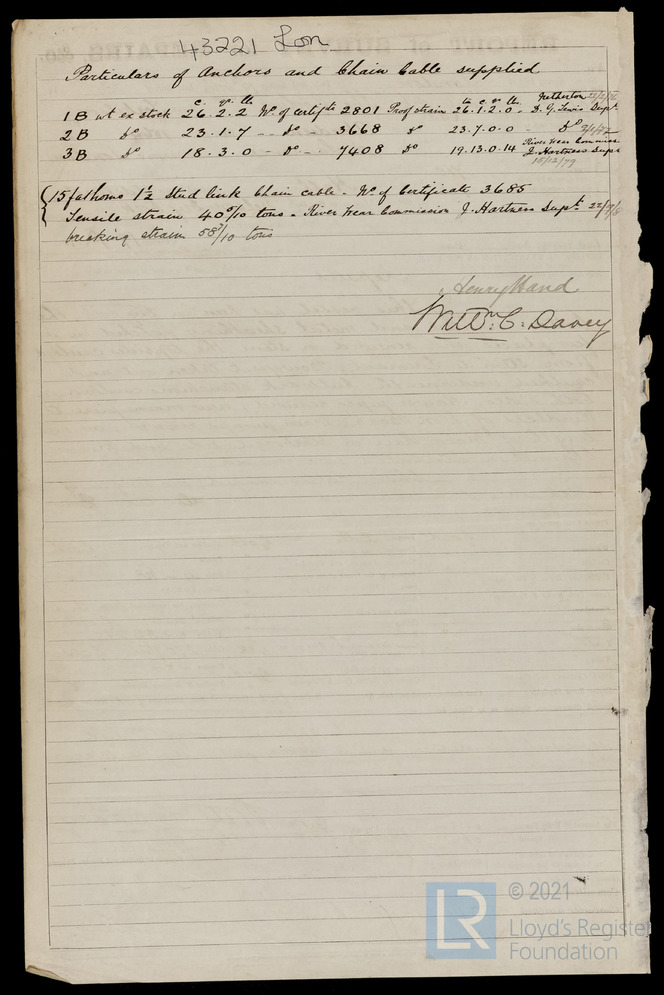 43221 Lon
Particulars of Anchors and Chain Cable supplied
c. qr. lb t. c. qr. lb Netherton
1 B wt ex stock 26.2.2 No of certifte 2801 Proof strain 26.1.2.0 - D. G. Lewis Supt
2 B Do 23.1.7 - Do - 3668 Do 23.7.0.0 - Do
River Wear Commiss
3 B Do 18.3.0 - Do - 7408 Do 19.13.0.14 J. Hartness Supt
15/12/79
15 fathoms 1½ Stud link Chain cable - No of Certificate 3685
Tensile strain 40 5/10 tons - River Wear Commission J. Hartness Supt
breaking strain tons
Henry Hand
Wm. C. Davey
LR
© 2021
Lloyd's Register
Foundation